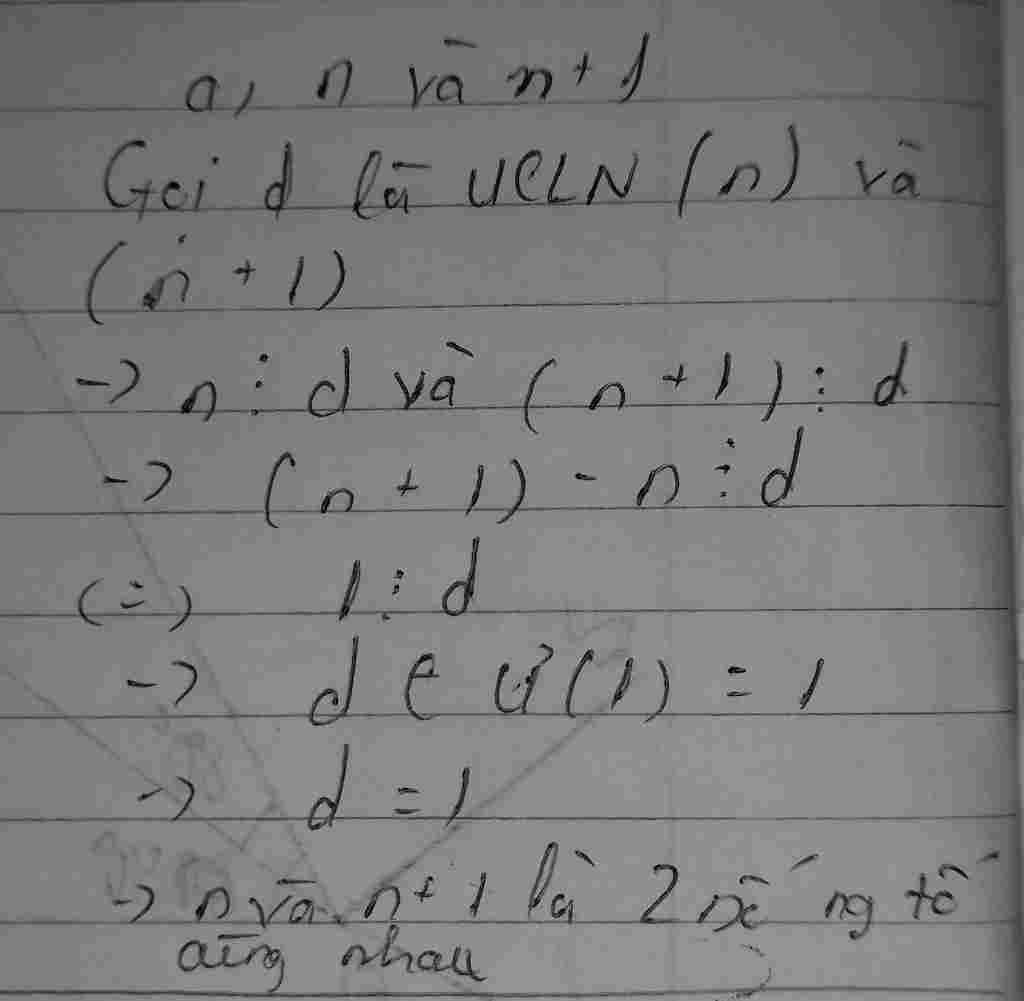 a, n và n + 1
Gọi d là ƯCLN (n) và
(n + 1)
-> n ⋮ d và (n + 1) ⋮ d
-> (n + 1) - n ⋮ d
(=) 1 ⋮ d
-> d ∈ Ư(1) = 1
-> d = 1
-> n và n + 1 là 2 số ng tố
cùng nhau